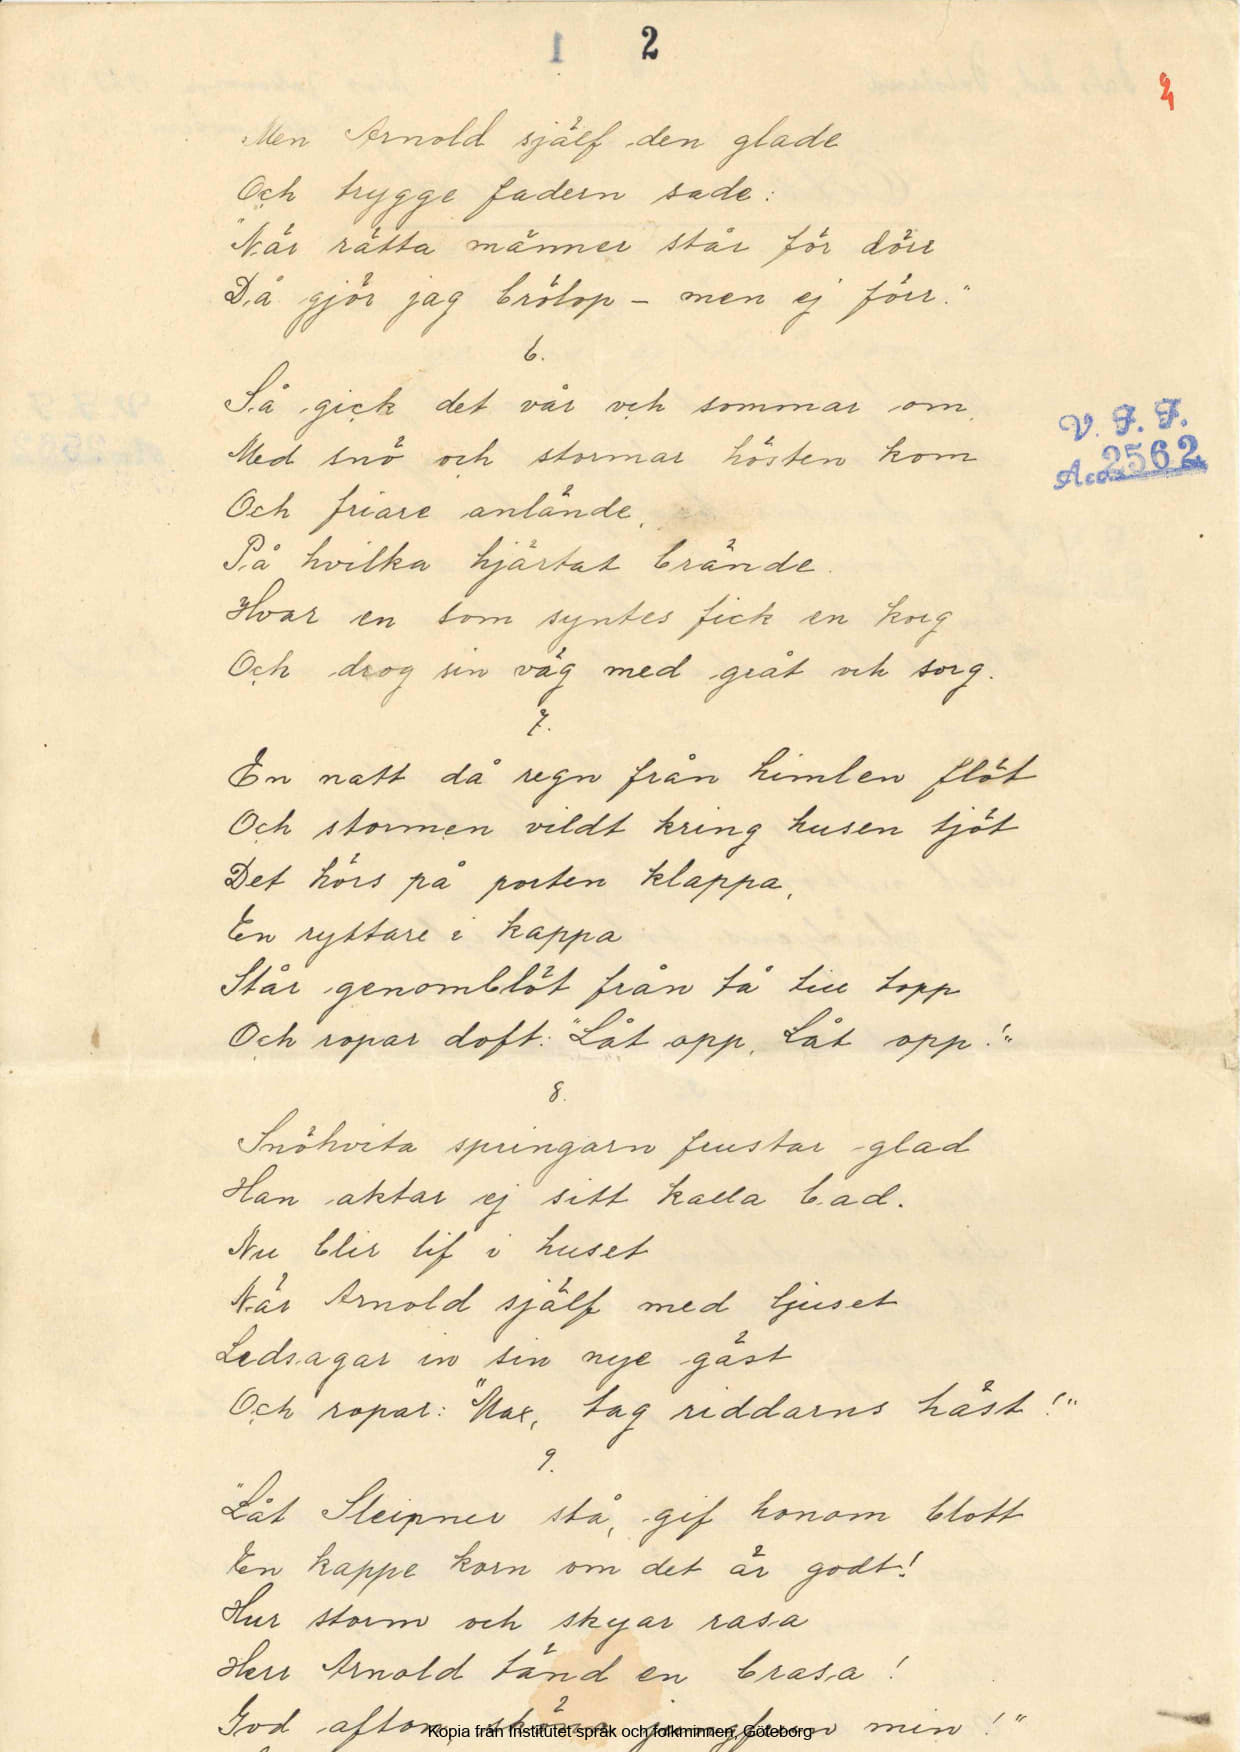 1 2
2
Men Arnold själf den glade
Och trygge fadern sade:
"När rätta männer står för dörr
Då gjör jag brölop – men ej förr."
6.
Så gick det vår och sommar om
Med snö och stormar hösten kom
Och friare anlände,
På hvilka hjärtat brände.
Hvar en som syntes fick en korg
Och drog sin väg med gråt och sorg.
V. F. F.
Acc. 2562
7.
En natt då regn från himlen flöt
Och stormen vildt kring husen tjöt
Det hörs på porten klappa,
En ryttare i kappa
Står genomblöt från tå till topp
Och ropar doft: "Låt opp, Låt opp!"
8.
Snöhvita springarn frustar glad
Han aktar ej sitt kalla bad.
Nu blir lif i huset
När Arnold själf med ljuset
Ledsagar in sin nye gäst
Och ropar: "Max, tag riddarns häst!"
9.
"Låt Sleipner stå, gif honom blott
En kappe korn om det är godt!
Hur storm och skyar rasa
Herr Arnold tänd en brasa!
God afton, sköna jungfrun min!"
Kopia från Institutet språk och folkminnen, Göteborg